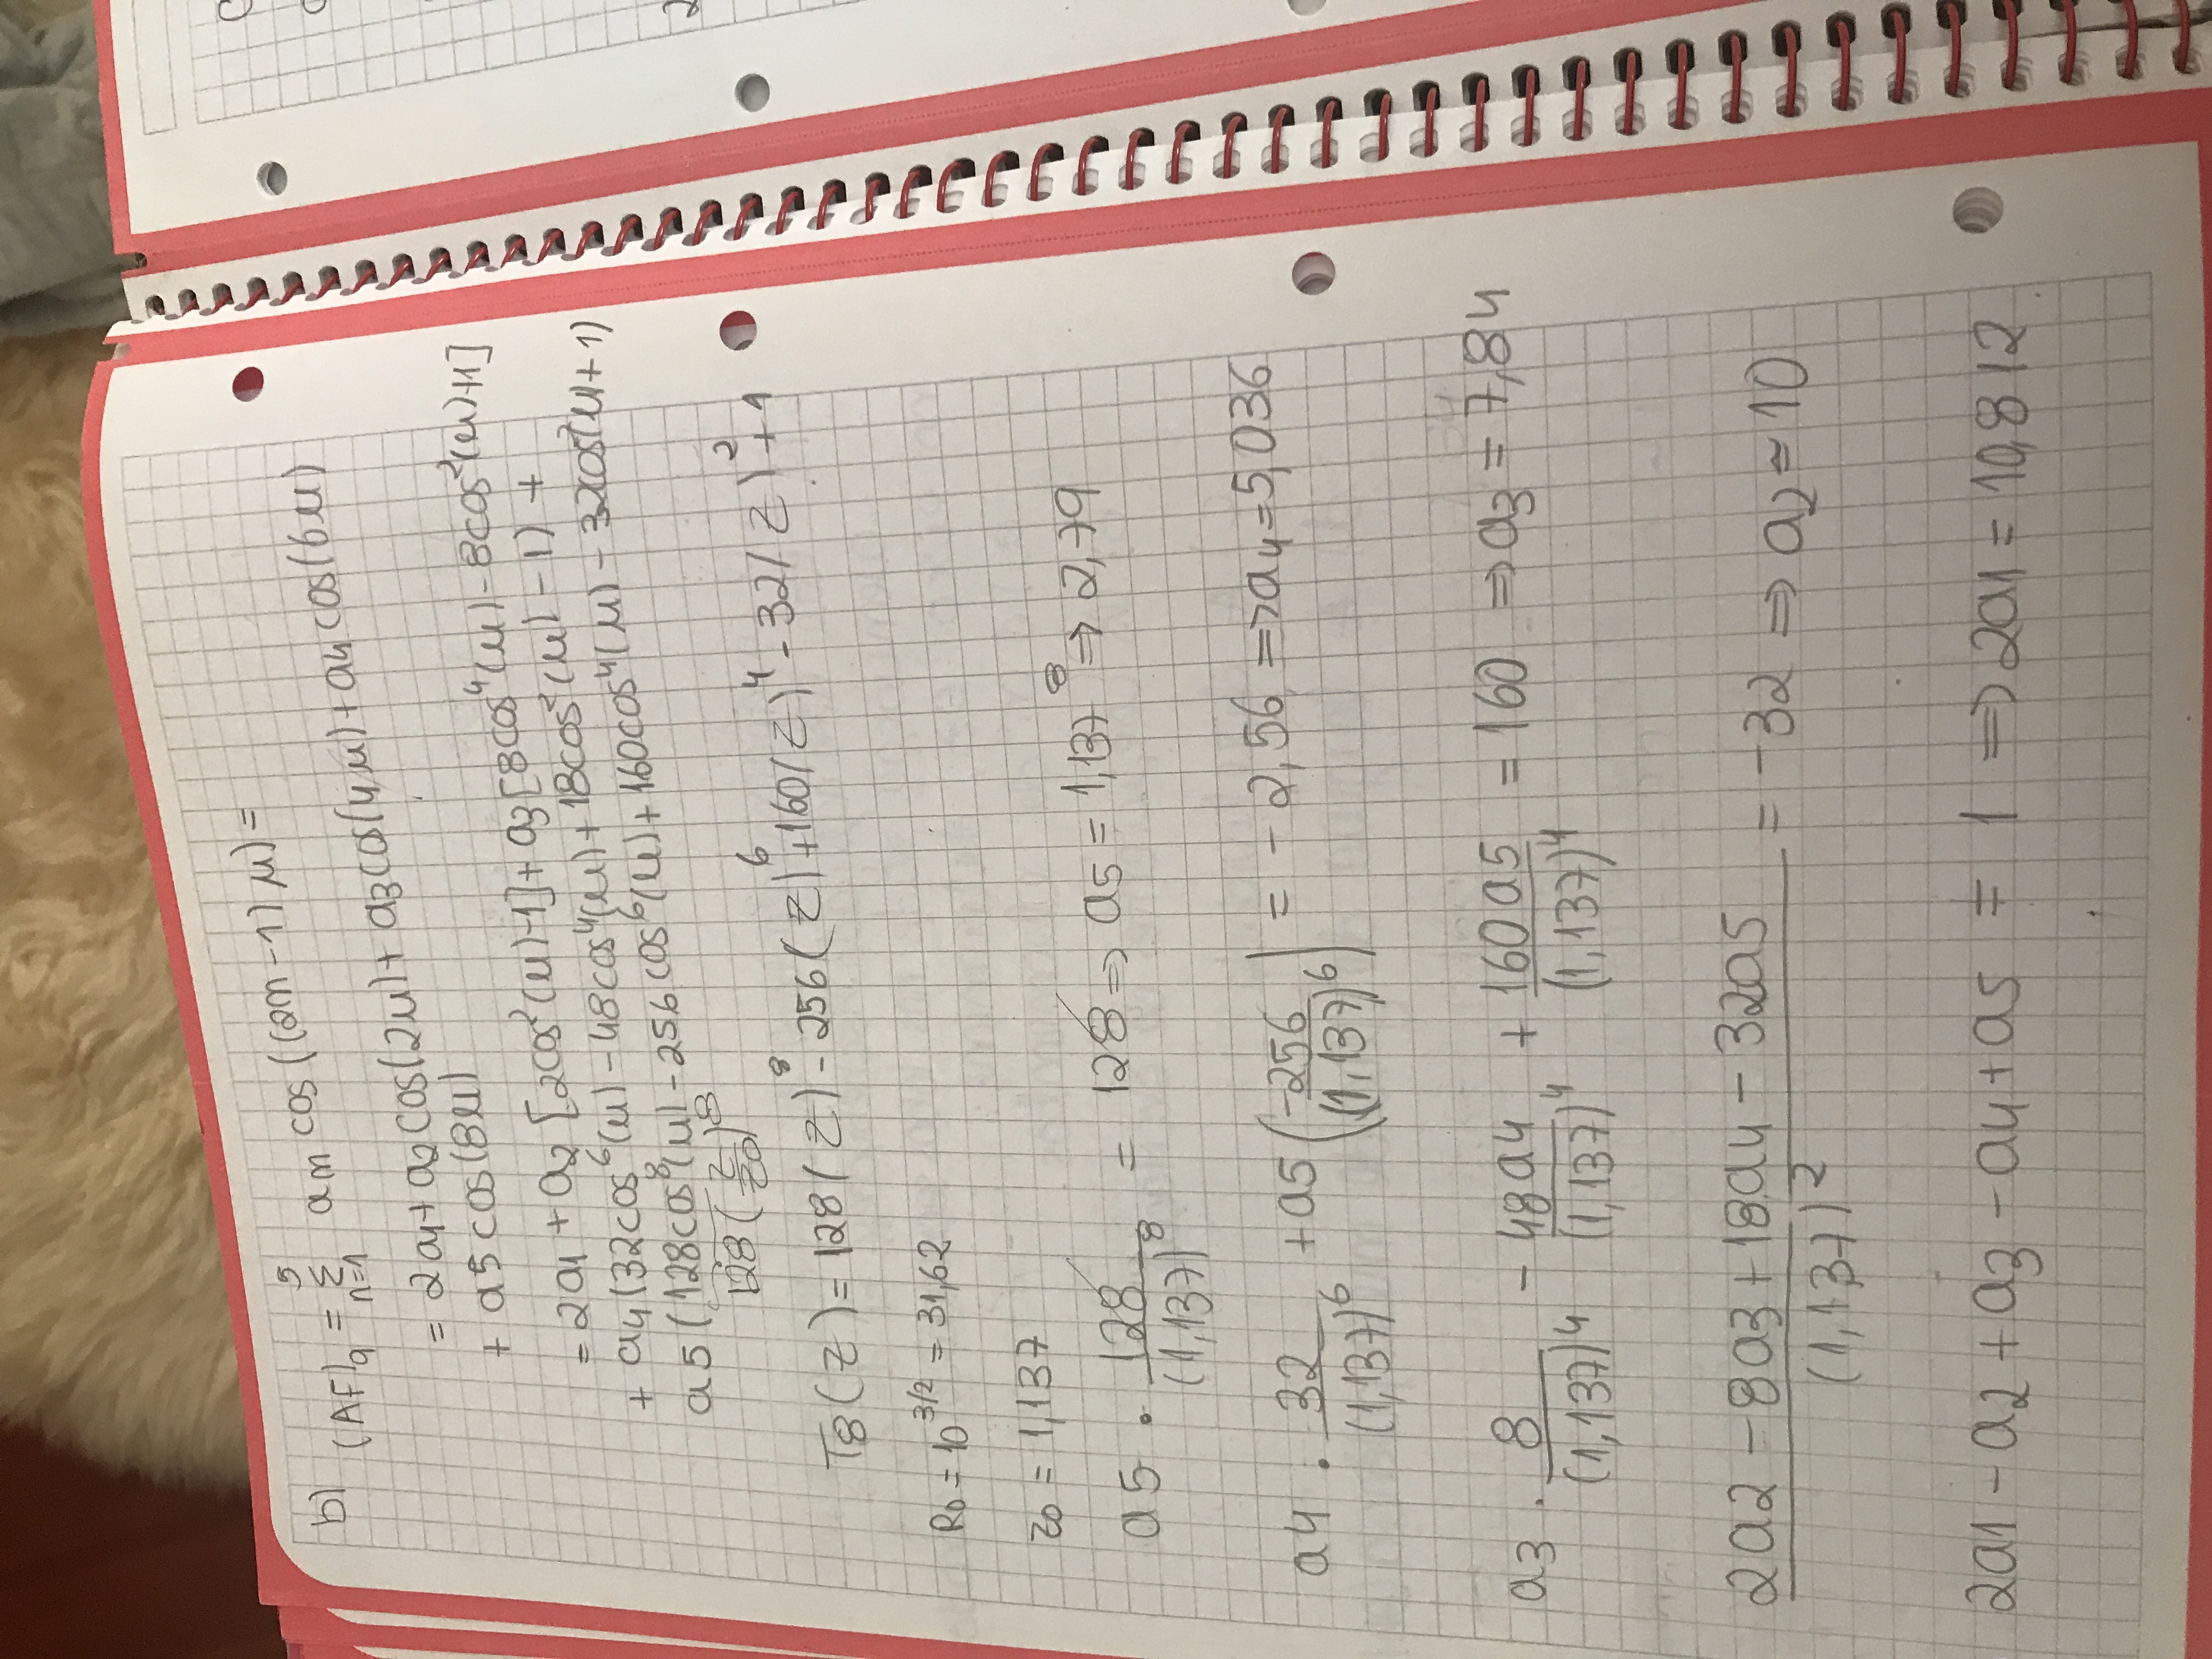 b) (AF)₉ = Σ_{n=1}^{5} an cos((2n-1)μ) =
= 2a1+ a2 cos(2μ)+ a3cos(4μ)+a4cos(6μ)
+ a5cos(8μ)
= 2a1 + a2 [2cos²(μ)-1]+ a3[8cos⁴(μ)-8cos²(μ)+1]
+ a4(32cos⁶(μ)-48cos⁴(μ)+18cos²(μ)-1) +
a5(128cos⁸(μ)-256cos⁶(μ)+160cos⁴(μ)-32cos²(μ)+1)
128(z/z0)⁸
T8(z)=128(z)⁸-256(z)⁶+160(z)⁴-32(z)²+1
R0=10^{3/2} = 31,62
z0 = 1,137
a5 · 128/(1,137)⁸ = 128 ⇒ a5 = 1,137⁸ ⇒ 2,79
a4 · 32/(1,137)⁶ + a5(-256/(1,137)⁶) = -2,56 ⇒ a4=5,036
a3 · 8/(1,137)⁴ - 48a4/(1,137)⁴ + 160a5/(1,137)⁴ = 160 ⇒ a3 = 7,84
(2a2-8a3+18a4-32a5)/(1,137)² = -32 ⇒ a2≈10
2a1-a2+a3-a4+a5 = 1 ⇒ 2a1=10,812